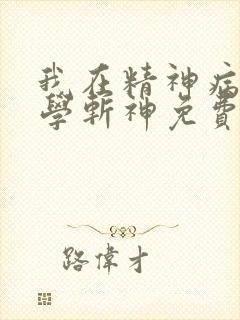 我在精神病
學斬神免費
路偉才